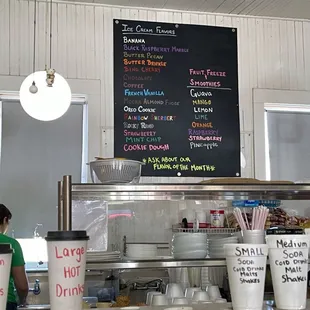 Ice Cream Flavors
Banana
Black Raspberry Mango
Butter Pecan
Butter Brickle
Chocolate
Coffee
French Vanilla
Oreo Cookie
Rocky Road
Rainbow Sherbert
Strawberry
Mint Chip
Cookie Dough
Fruit Freeze
Smoothies
Guava
Mango
Lemon
Lime
Orange
Raspberry
Strawberry
Pineapple
Ask About our
Flavor of the Month
Large
HOT
Drinks
Small
Soda
Cold Drinks
Malt
Shakes
Medium
Soda
Cold Drinks
Malt
Shakes